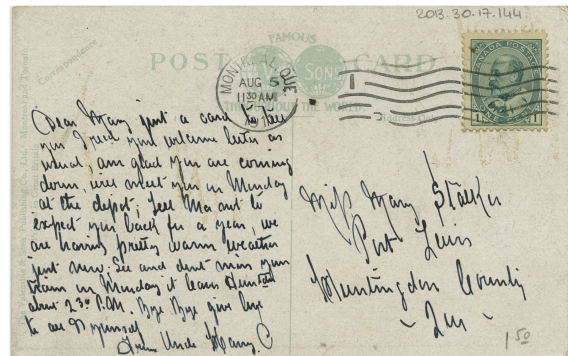 2013.30.17.144
Correspondence
FAMOUS
POST CARD
SONS
MONTREAL, QUE.
AUG 5
11 30 AM
191
CANADA POSTAGE
1 1
Dear Mary just a card to
you I recd your welcome letter as
usual, am glad you are coming
down, will meet you on Monday
at the depot, tell Ma not to
expect you back for a year, we
are having pretty warm weather
just now. See and dont miss your
train on Monday it leaves
about 2.30 P.M. Bye Bye give love
to all & yourself
From Uncle Harry
Miss Mary Stalker
Port Lewis
Huntingdon County
Que
1 50